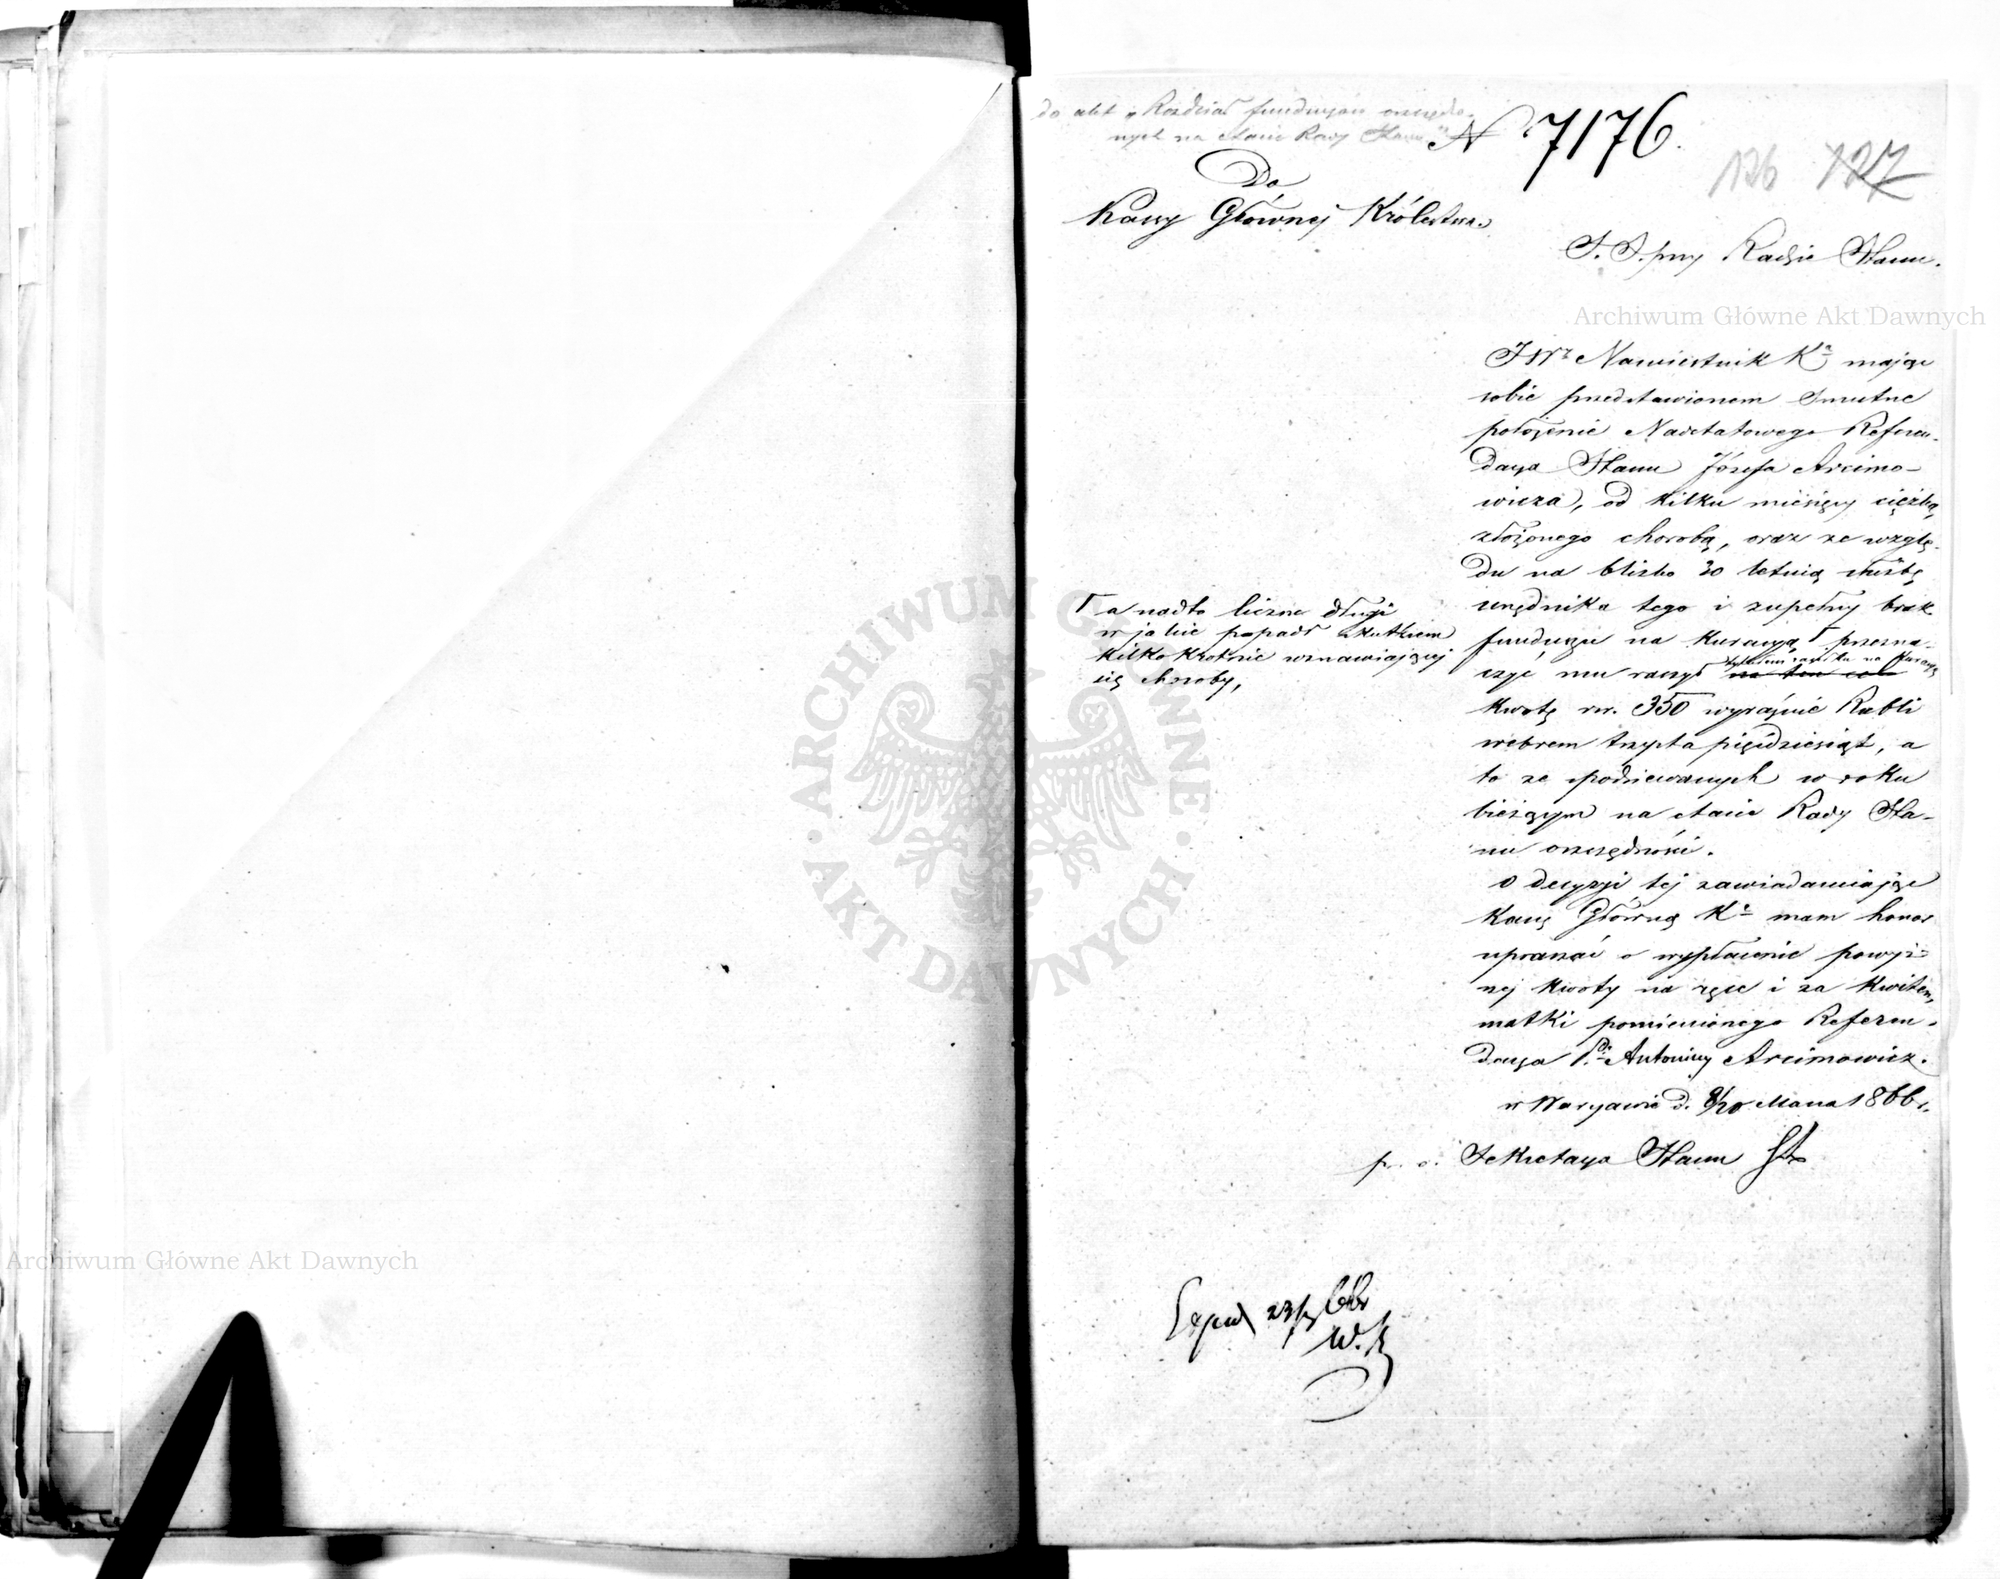 do akt „Rozdział funduszów oszczędzo-
nych na etacie Rady Stanu"
N 7176.
126 127
Do
Kassy Głównej Królestwa.
S. S. przy Radzie Stanu.
Archiwum Główne Akt Dawnych
JWz Namiestnik Ka mając
sobie przedstawionem smutne
położenie Nadetatowego Referen-
darza Stanu Józefa Arcimo-
wicza, od kilku miesięcy ciężką
złożonego chorobą, oraz ze wzglę-
du na blisko 30 letnią służbę
urzędnika tego i zupełny brak
funduszu na kuracyą, Γ przezna-
czyć mu raczył na ten cel
tytułem zasiłku na kuracyę
kwotę rsr. 350 wyraźnie Rubli
srebrem trzysta pięćdziesiąt, a
to ze spodziewanych w roku
bieżącym na etacie Rady Sta-
nu oszczędności.
Γ a nadto liczne długi
w jakie popadł skutkiem
kilkokrotnie wznawiającej
się choroby,
O decyzyi tej zawiadamiając
Kassę Główną Ka mam honor
upraszać o wypłacenie powyż-
szej kwoty na ręce i za kwitem,
matki pomienionego Referen-
darza P. Antoniny Arcimowicz.
w Warszawie d. 8/20 Marca 1866 r.
p. o. Sekretarza Stanu
Exped 23/3 66
W. K
ARCHIWUM GŁÓWNE · AKT DAWNYCH ·
Archiwum Główne Akt Dawnych